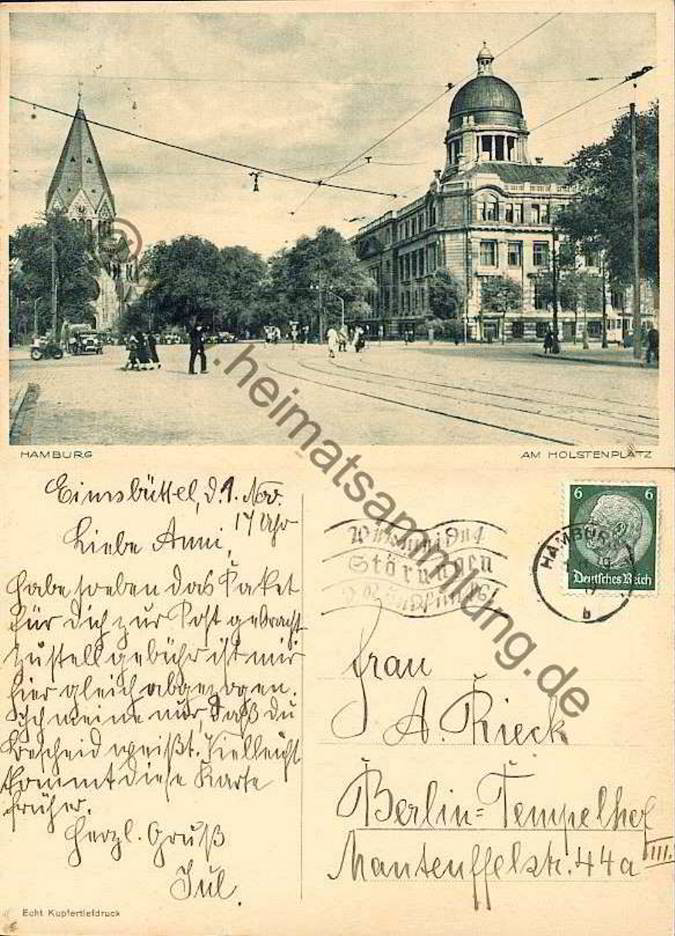 HAMBURG
AM HOLSTENPLATZ
Eimsbüttel, d. 1. Nov.
17 Uhr
Liebe Anni,
habe soeben das Paket
für Dich zur Post gebracht
Zustellgebühr ist mir
hier gleich abgezogen.
Ich meine nur, daß du
Bescheid weißt. Vielleicht
kommt diese Karte
früher.
Herzl. Gruß
Jul.
Echt Kupfertiefdruck
6 6
Deutsches Reich
HAMBURG
b
Störungen
Frau
A. Rieck
Berlin=Tempelhof
Manteuffelstr. 44a III.
© heimatsammlung.de